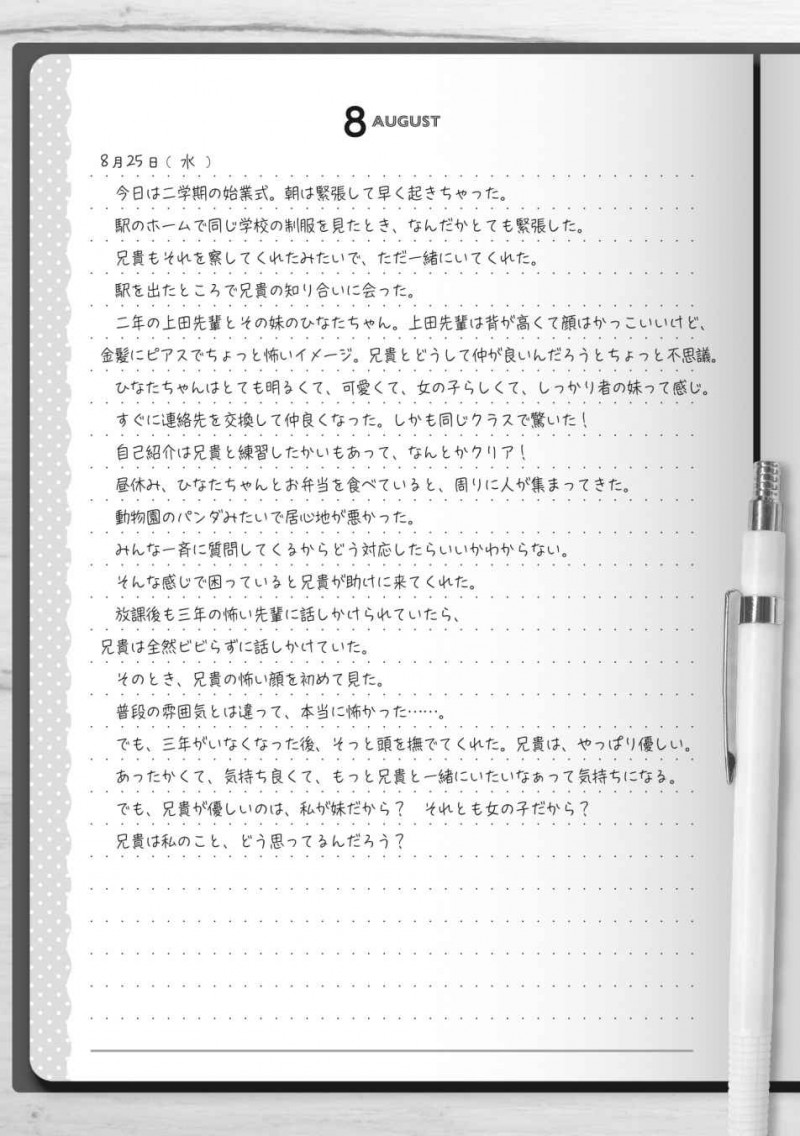 8 AUGUST
8月25日(水)
今日は二学期の始業式。朝は緊張して早く起きちゃった。
駅のホームで同じ学校の制服を見たとき、なんだかとても緊張した。
兄貴もそれを察してくれたみたいで、ただ一緒にいてくれた。
駅を出たところで兄貴の知り合いに会った。
二年の上田先輩とその妹のひなたちゃん。上田先輩は背が高くて顔はかっこいいけど、
金髪にピアスでちょっと怖いイメージ。兄貴とどうして仲が良いんだろうとちょっと不思議。
ひなたちゃんはとても明るくて、可愛くて、女の子らしくて、しっかり者の妹って感じ。
すぐに連絡先を交換して仲良くなった。しかも同じクラスで驚いた!
自己紹介は兄貴と練習したかいもあって、なんとかクリア!
昼休み、ひなたちゃんとお弁当を食べていると、周りに人が集まってきた。
動物園のパンダみたいで居心地が悪かった。
みんな一斉に質問してくるからどう対応したらいいかわからない。
そんな感じで困っていると兄貴が助けに来てくれた。
放課後も三年の怖い先輩に話しかけられていたら、
兄貴は全然ビビらずに話しかけていた。
そのとき、兄貴の怖い顔を初めて見た。
普段の雰囲気とは違って、本当に怖かった……。
でも、三年がいなくなった後、そっと頭を撫でてくれた。兄貴は、やっぱり優しい。
あったかくて、気持ち良くて、もっと兄貴と一緒にいたいなぁって気持ちになる。
でも、兄貴が優しいのは、私が妹だから? それとも女の子だから?
兄貴は私のこと、どう思ってるんだろう?